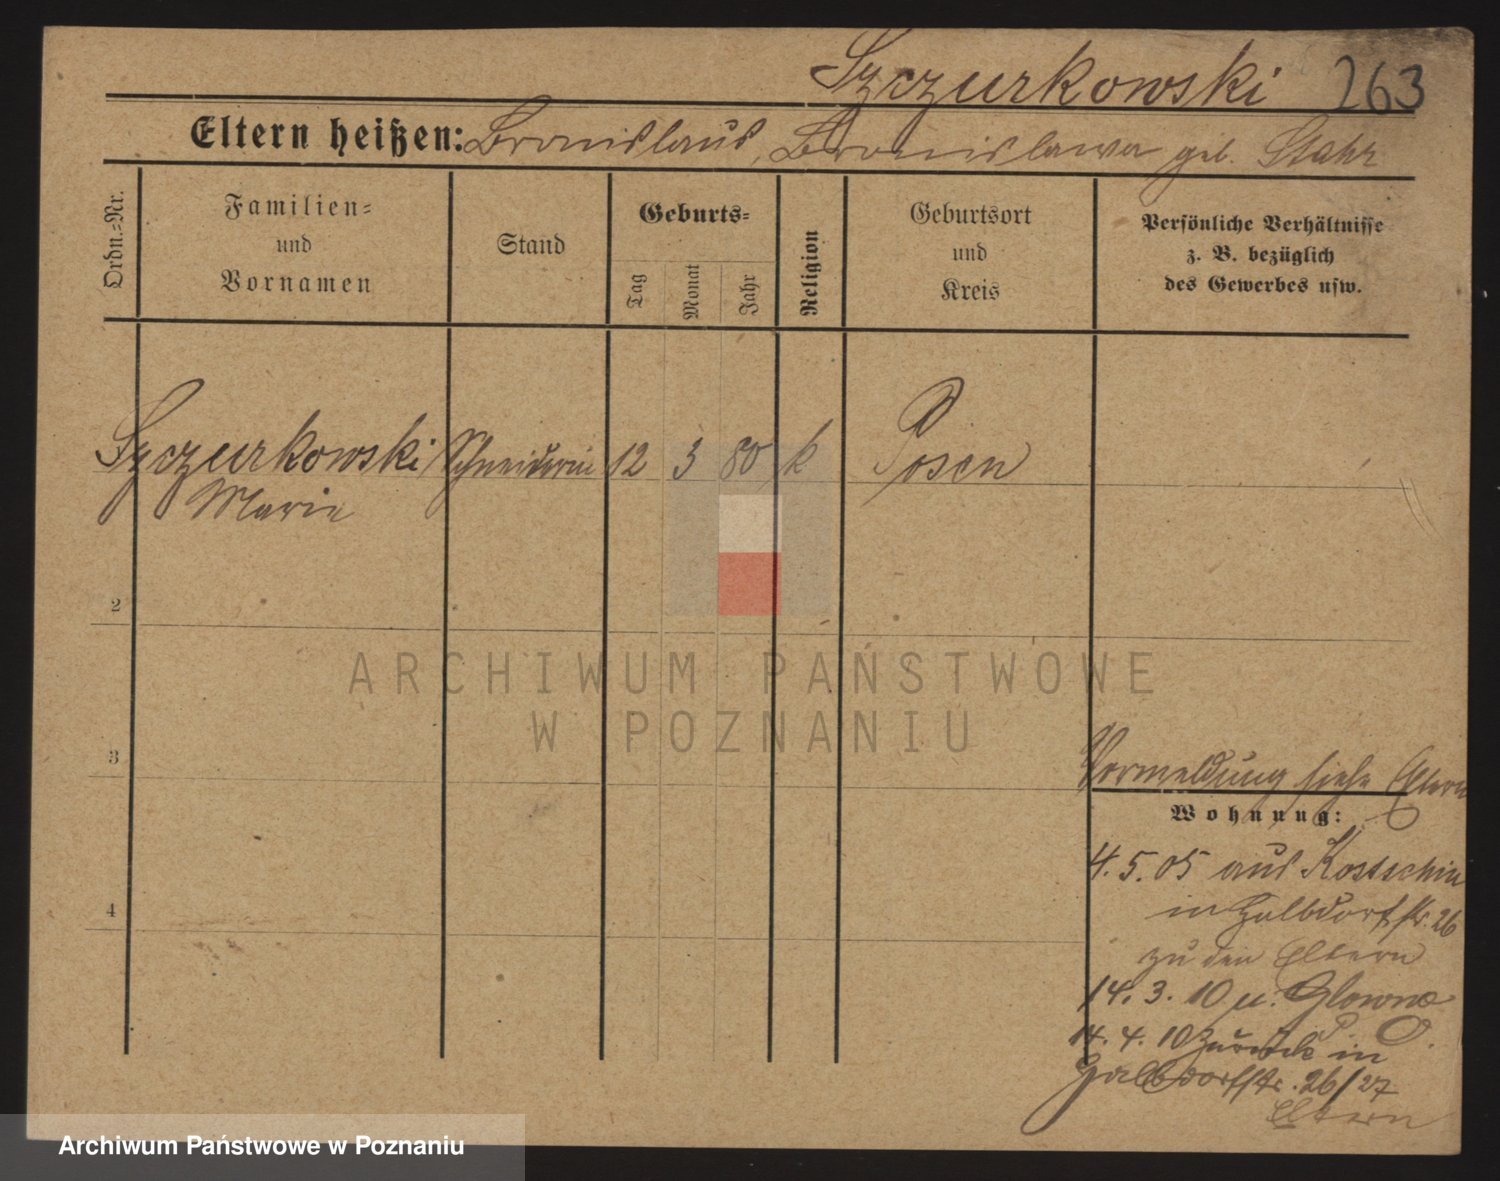 Szczurkowski 263
Eltern heißen: Bronislaus, Bronislawa geb. Stahr
Ordn.-Nr.
Familien-
und
Vornamen
Stand
Geburts-
Tag
Monat
Jahr
Religion
Geburtsort
und
Kreis
Persönliche Verhältnisse
z. B. bezüglich
des Gewerbes usw.
Szczurkowski Schneiderin 12 3 80 k Posen
Marie
2
ARCHIWUM PAŃSTWOWE
W POZNANIU
3
Vormeldung siehe Eltern
Wohnung:
4.5.05 aus Kostschin
in Halbdorfstr. 26
zu den Eltern
4
14.3.10 n. Glowno
14.4.10 zurück in
Halbdorfstr. 26/27
Eltern
Archiwum Państwowe w Poznaniu